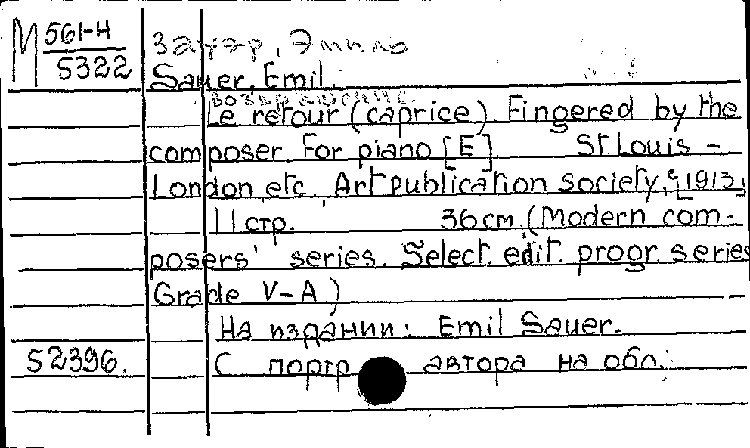 М 561-4
5322
Зауэр, Эмиль
Sauer, Emil.
Возвращение.
Le retour (caprice). Fingered by the
composer. For piano [E] St Louis –
London etc. Art publication society, [1913,
11 стр. 36 см. (Modern com-
posers' series. Select. edit. progr series
Grade V–A)
На издании: Emil Sauer.
52396. С портр. автора на обл.